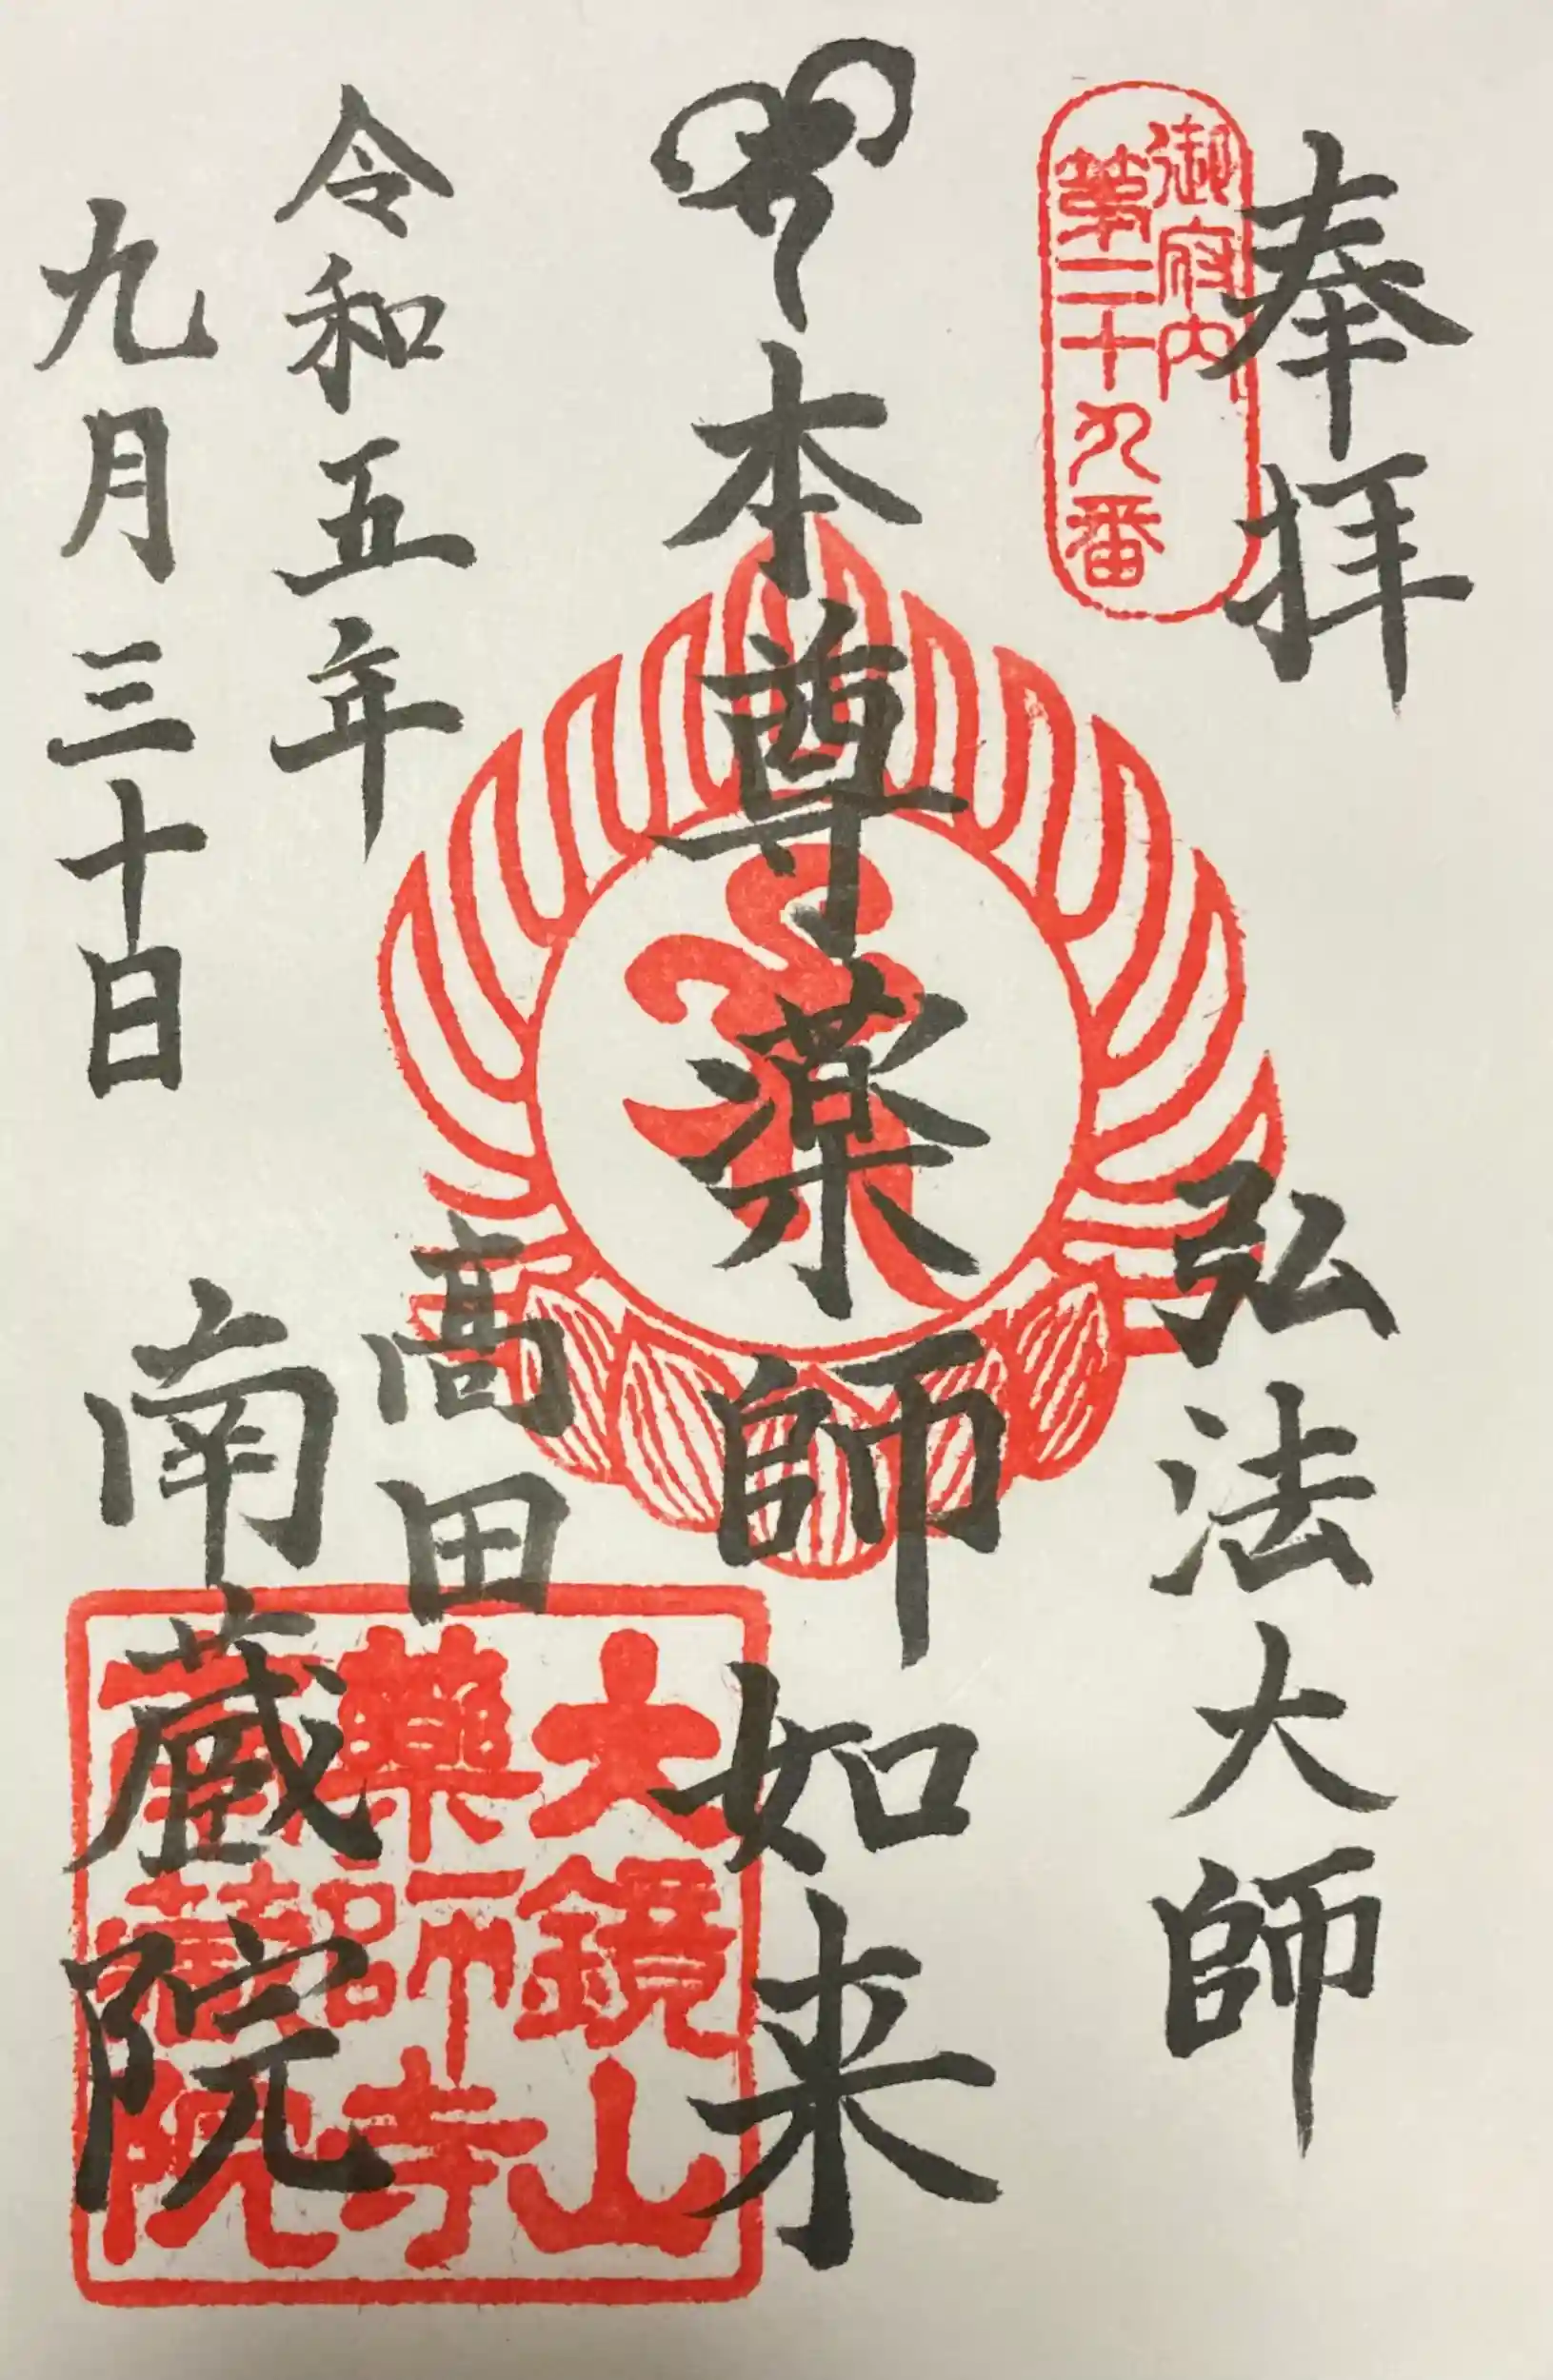 奉拝
弘法大師
御府内
第二十九番
本尊薬師如来
令和五年
九月三十日
高田
南蔵院
大鏡山
藥師寺
南蔵院